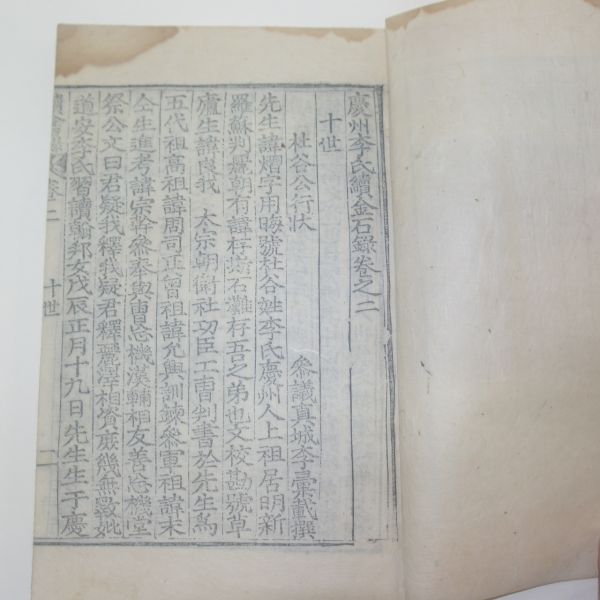 慶州李氏續金石錄卷之二
十世
杜谷公行狀 參議真城李彙載撰
先生諱熠字用晦號杜谷姓李氏慶州人上祖居明新
羅蘇判麗朝有諱存石灘存吾之弟也文校勘號草
廬生諱我 太宗朝衛社功臣工曹判書於先生爲
五代祖高祖諱司正曾祖諱允興訓鍊參軍祖諱末
仝生進考諱宗幹參奉與曹忘機漢輔相友善忘機堂
祭公文曰君疑我釋我疑君釋麗澤相資庶幾無斁妣
道安李氏習讀翰邦女戊辰正月十九日先生生于慶
續金石錄 卷二 十世 一